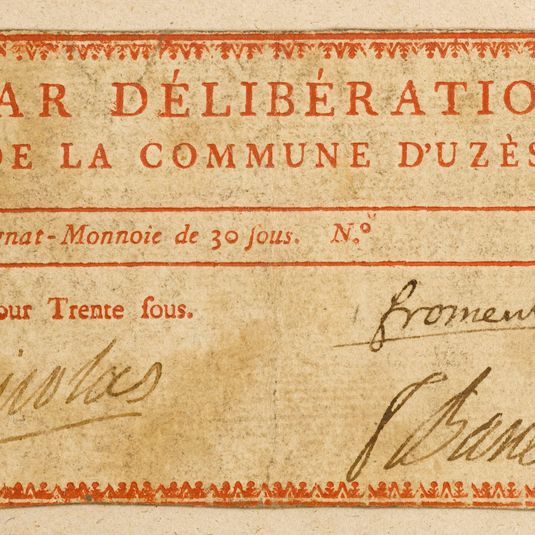 AR DÉLIBÉRATIO
DE LA COMMUNE D'UZÈS
gnat-Monnoie de 30 ſous. N.º
our Trente ſous.
froment
icolas